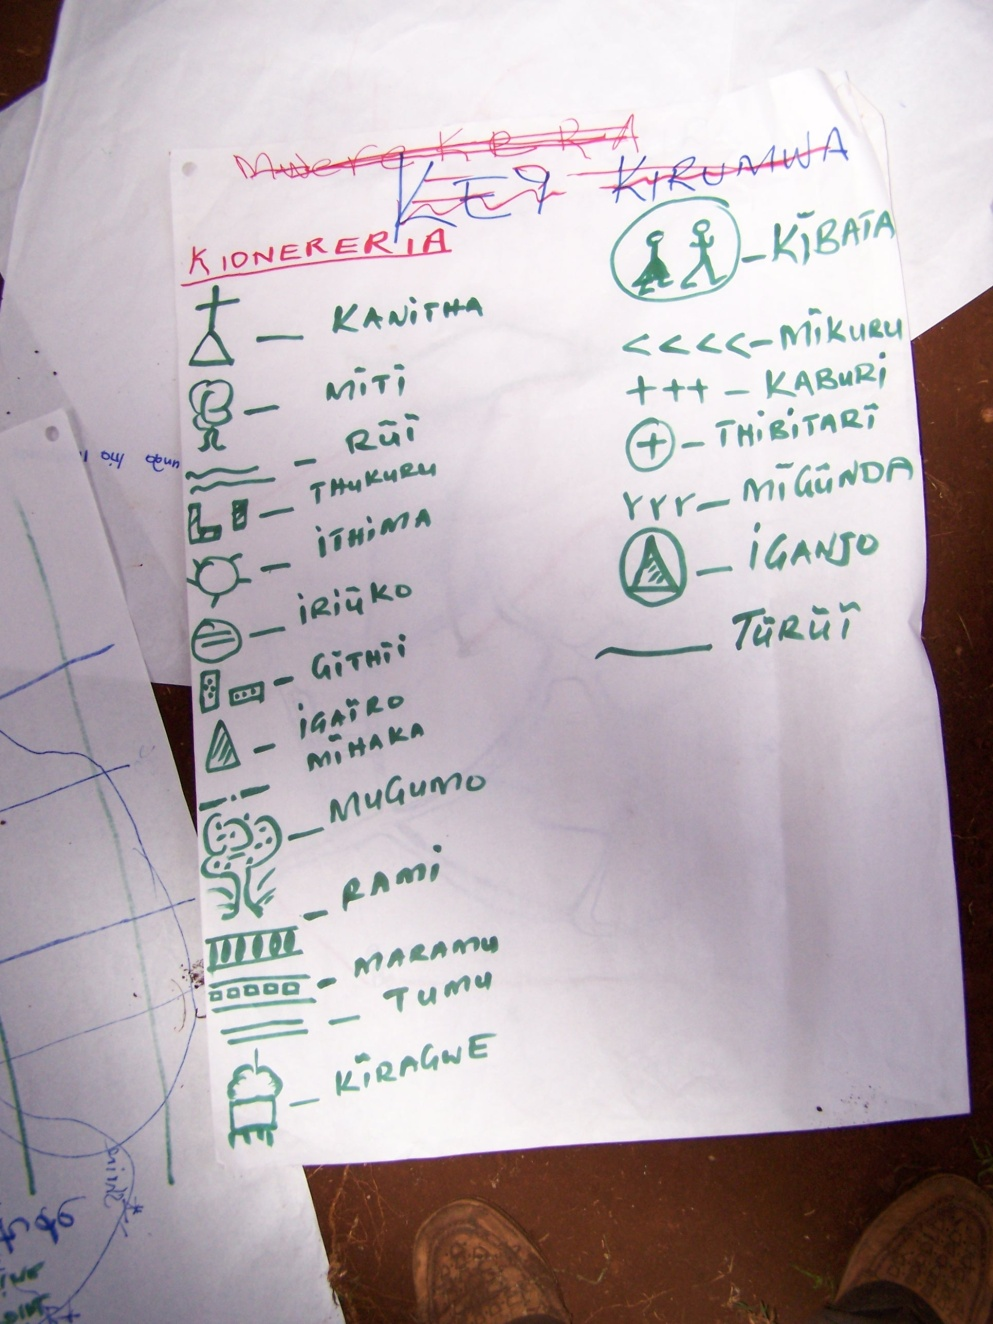 KEY KIRUMWA
KIONERERIA
KANITHA
MĪTĪ
RŨĪ
THUKURU
ITHIMA
IRIŨKO
GĪTHII
IGAĪRO
MĪHAKA
MUGUMO
RAMI
MARAMU
TUMU
KĪRAGWE
KĪBATA
<<<<-MĪKURU
+++ - KABURI
THIBITARĪ
MĪGŨNDA
IGANJO
TŨRŨĪ